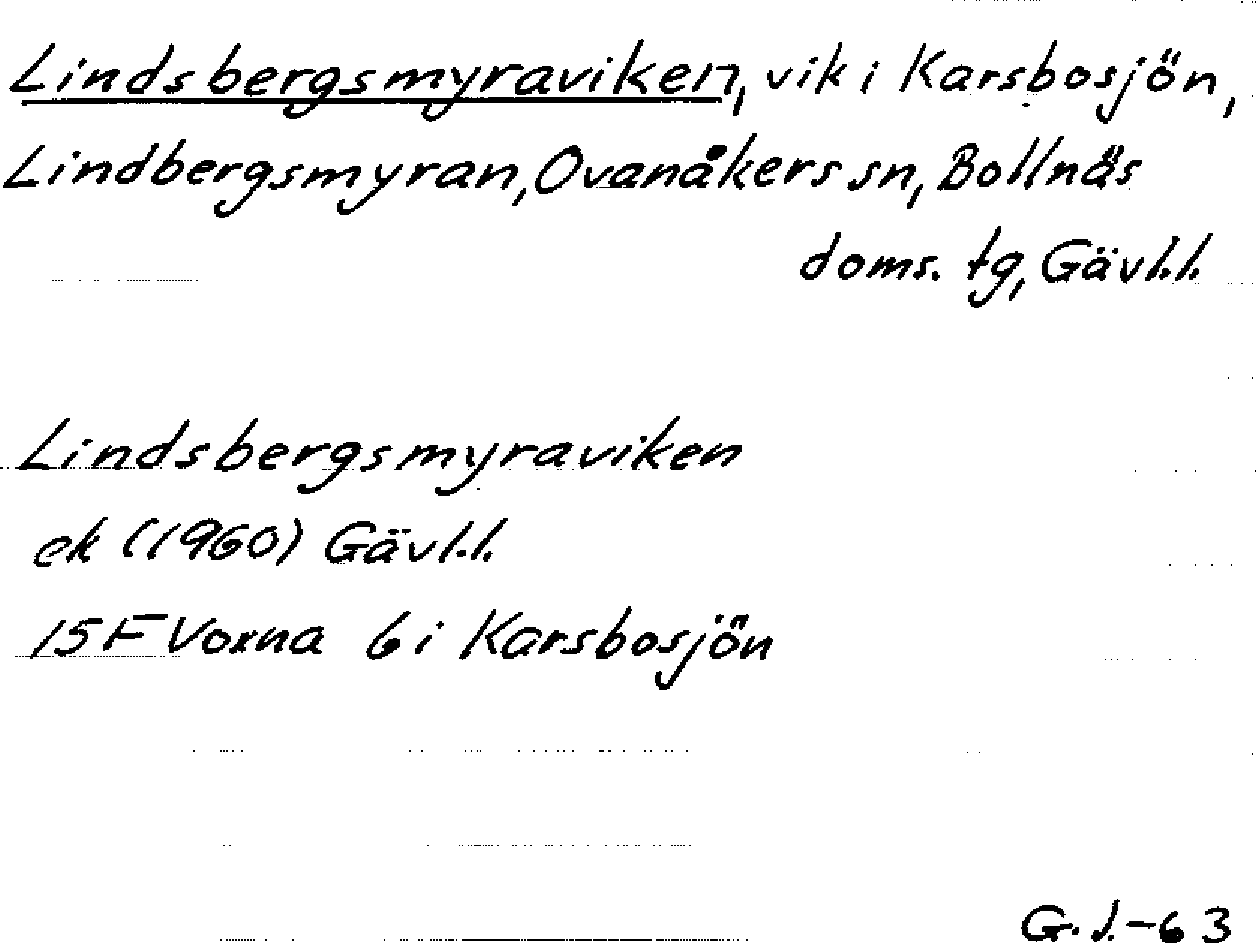 Lindsbergsmyraviken, vik i Karsbosjön,
Lindbergsmyran, Ovanåkers sn, Bollnäs
doms. tg, Gävl.l.
Lindsbergsmyraviken
ek (1960) Gävl.l.
15F Voxna 6i Karsbosjön
G.J.-63